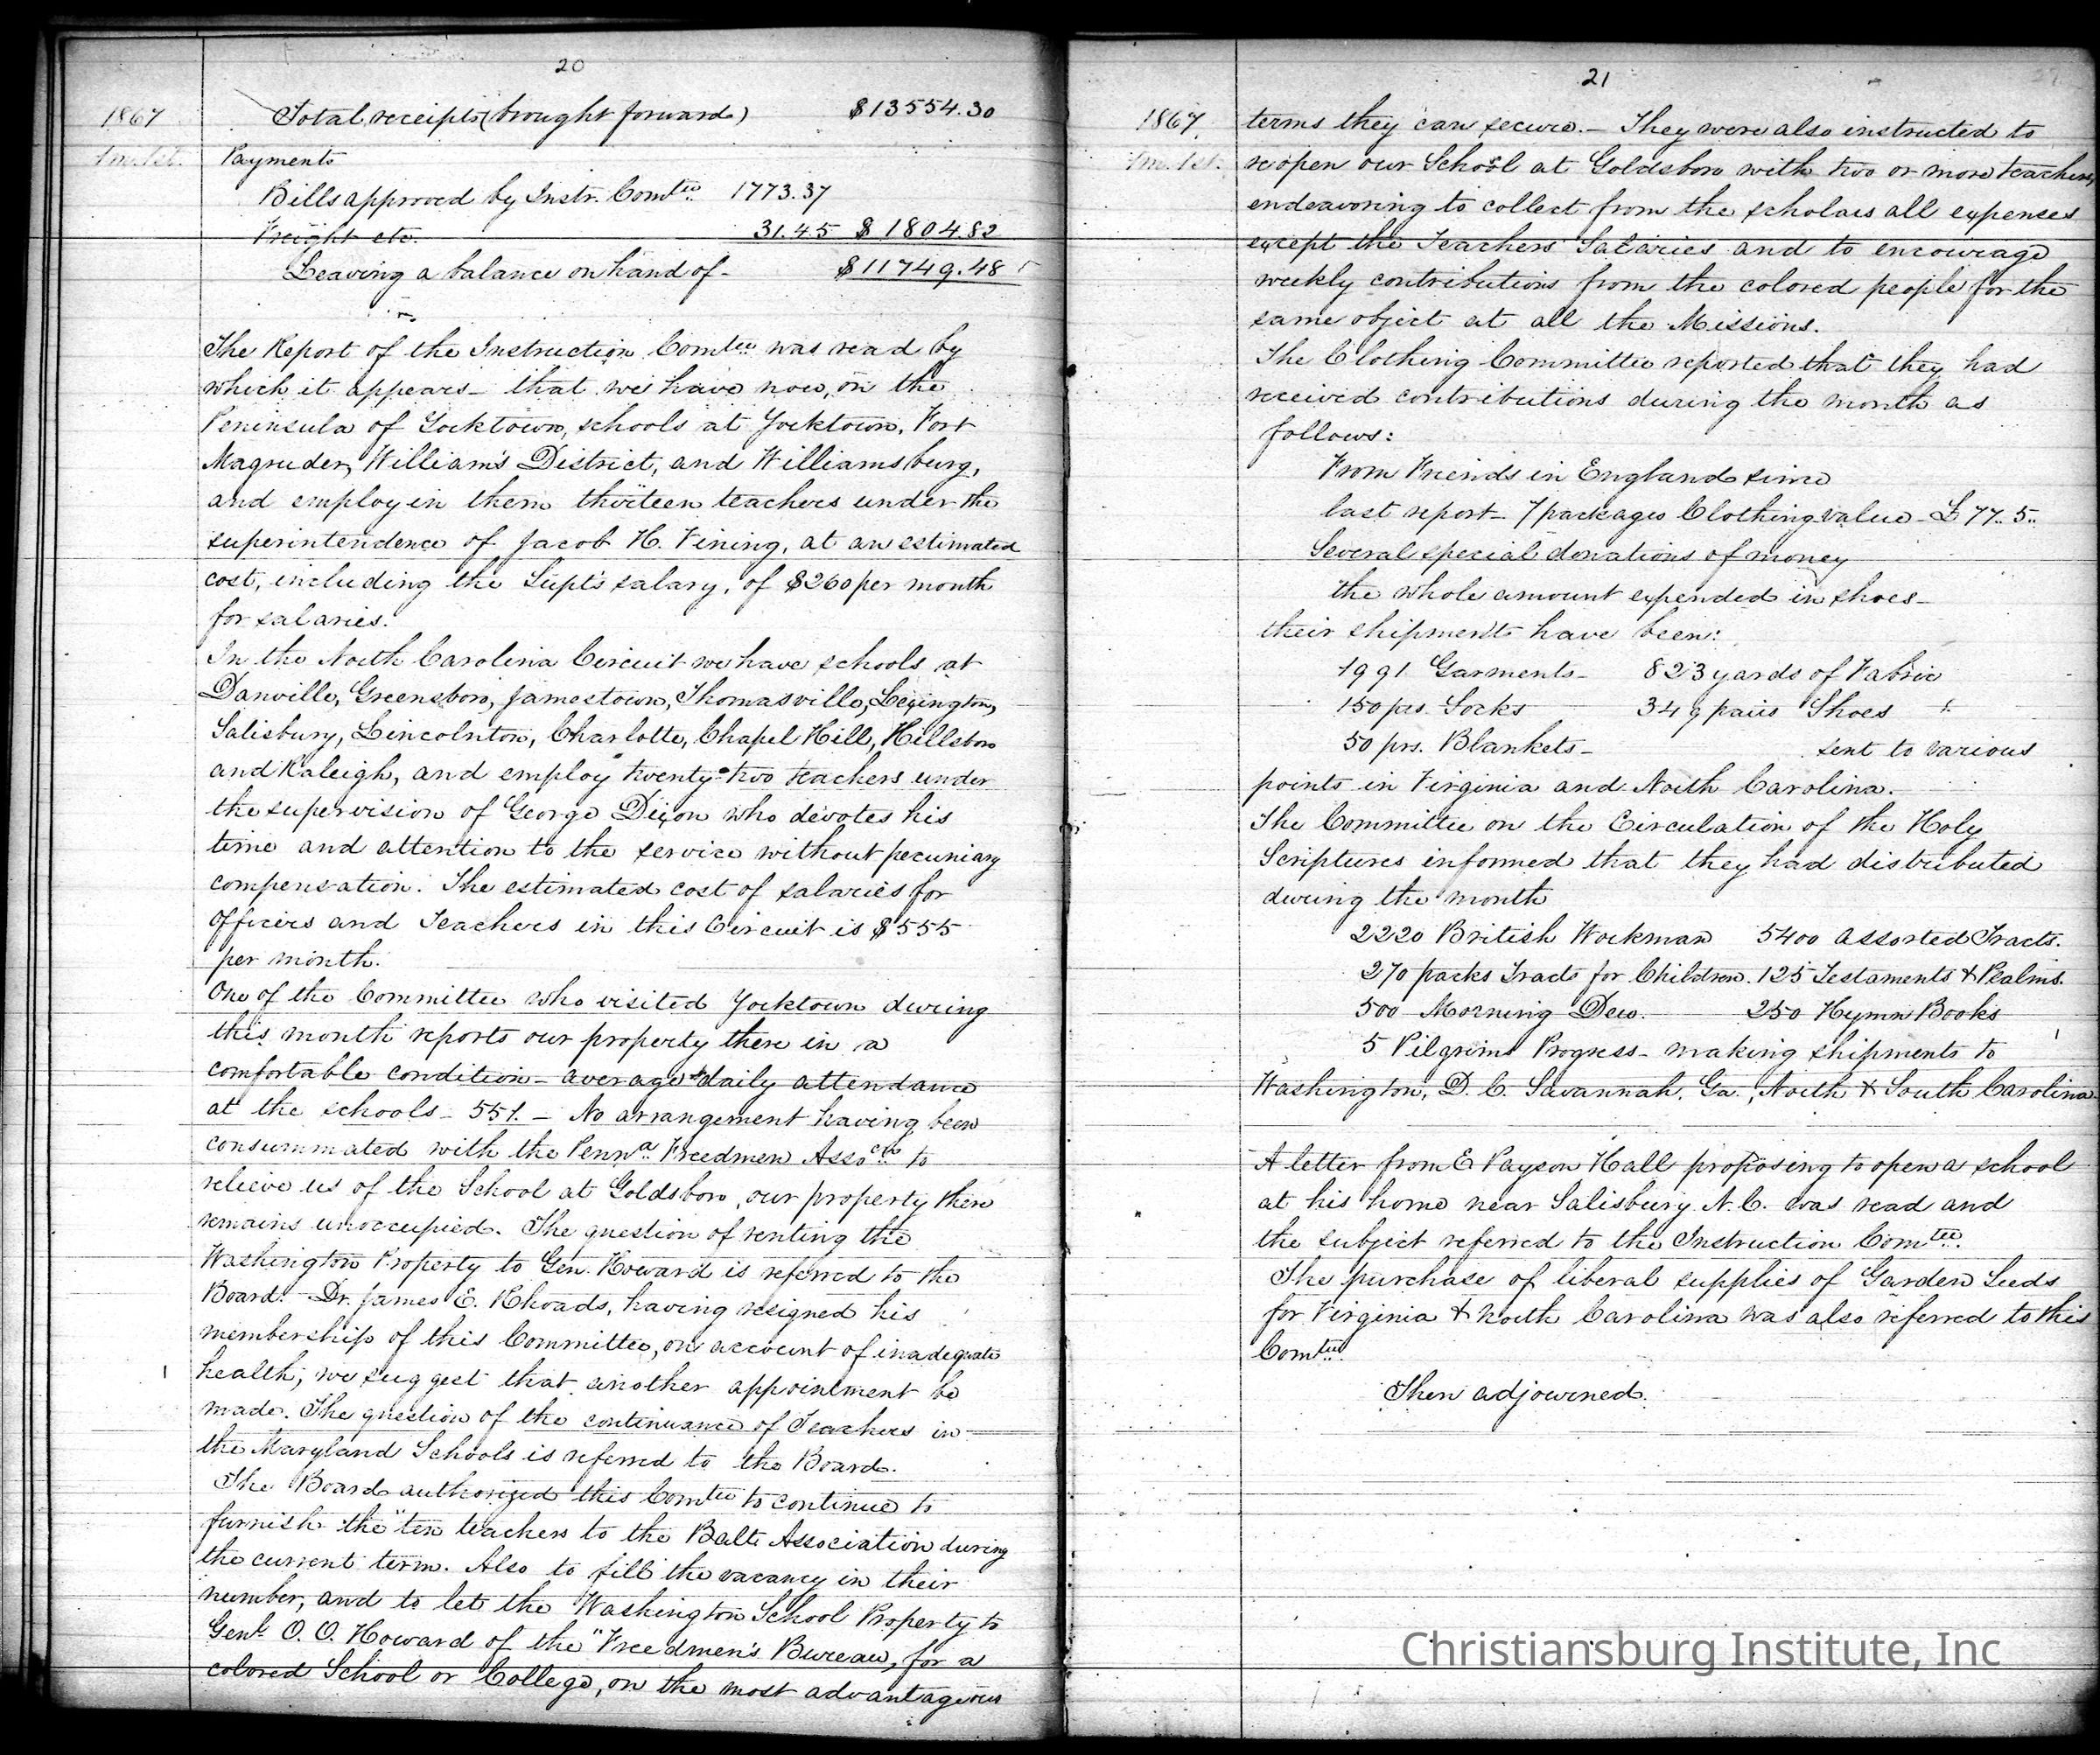 20
1867
1mo. 1st.
Total receipts (brought forward) $13554.30
Payments
Bills approved by Instr. Comtee. 1773.37
Freight etc. 31.45 $1804.82
Leaving a balance on hand of- $11749.48
The Report of the Instruction Comtee. was read by
which it appears- that we have now, on the
Peninsula of Yorktown, schools at Yorktown, Fort
Magruder, William's District, and Williamsburg,
and employ in them thirteen teachers under the
superintendence of Jacob H. Vining, at an estimated
cost, including the Supt's salary, of $260 per month
for salaries.
In the North Carolina Circuit we have schools at
Danville, Greensboro, Jamestown, Thomasville, Lexington,
Salisbury, Lincolnton, Charlotte, Chapel Hill, Hillsboro
and Raleigh, and employ twenty-two teachers under
the supervision of George Dixon who devotes his
time and attention to the service without pecuniary
compensation. The estimated cost of salaries for
Officers and Teachers in this Circuit is $555
per month.
One of the Committee who visited Yorktown during
this month reports our property there in a
comfortable condition- average daily attendance
at the schools- 551. - No arrangement having been
consummated with the Penna. Freedmen Assocn. to
relieve us of the School at Goldsboro, our property there
remains unoccupied. The question of renting the
Washington Property to Gen. Howard is referred to the
Board. Dr. James E. Rhoads, having resigned his
membership of this Committee, on account of inadequate
health; we suggest that another appointment be
made. The question of the continuance of Teachers in
the Maryland Schools is referred to the Board.
The Board authorized this Comtee to continue to
furnish the ten teachers to the Balto Association during
the current term. Also to fill the vacancy in their
number, and to let the Washington School Property to
Genl. O. O. Howard of the "Freedmen's Bureau, for a
colored School or College, on the most advantageous
21
1867
1mo. 1st.
terms they can secure. - They were also instructed to
reopen our School at Goldsboro with two or more teachers,
endeavoring to collect from the scholars all expenses
except the Teachers' Salaries and to encourage
weekly contributions from the colored people for the
same object at all the Missions.
The Clothing Committee reported that they had
received contributions during the month as
follows:
From Friends in England since
last report- 7 packages Clothing value- £77.. 5..
Several special donations of money
the whole amount expended in shoes-
their shipments have been:
1991 Garments- 823 yards of Fabric
150 prs. Socks 349 pairs Shoes
50 prs. Blankets- sent to various
points in Virginia and North Carolina.
The Committee on the Circulation of the Holy
Scriptures informed that they had distributed
during the month
2220 British Workman 5400 Assorted Tracts.
270 packs Tracts for Children. 125 Testaments & Psalms.
500 Morning Dew. 250 Hymn Books
5 Pilgrims Progress- making shipments to
Washington, D. C. Savannah, Ga., North & South Carolina.
A letter from E Payson Hall proposing to open a school
at his home near Salisbury N. C. was read and
the subject referred to the Instruction Comtee.
The purchase of liberal supplies of Garden Seeds
for Virginia & North Carolina was also referred to this
Comtee.
Then adjourned.
Christiansburg Institute, Inc